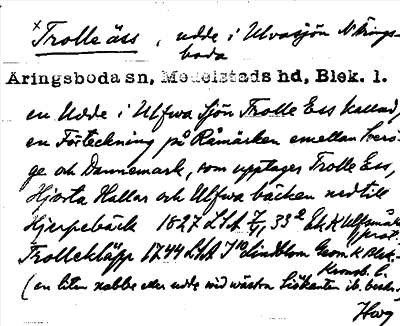 x Trolle äss, udde i Ulvasjön N Årings-
boda
Åringsboda sn, Medelstads hd, Blek. l.
en Udde i Ulfwa Sjön Trolle Ess kallad,
en Förteckning på Råmärken emellan Sveri-
ge och Dannemark, som upptager Trolle Ess,
Hjorta Hallar och Ulfwa bäcken ned till
Hjerpebäck 1827 LSA 33² Ek K Ulfsmåla
Trollekläpp 1744 LSA J10 Lindblom Geom K Blek.
Kronob. l.
(en liten nabbe eller udde wid wästra Siökanten ib. beskr.)